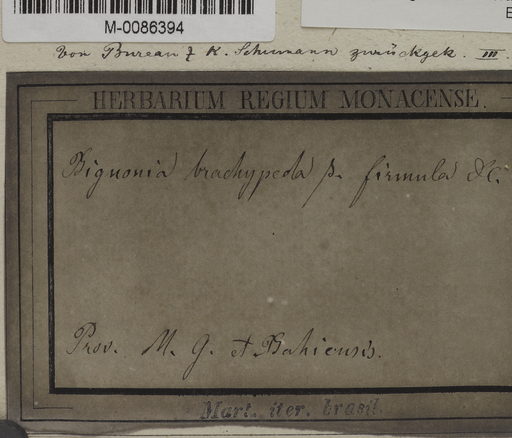 M-0086394
Von Bureau & K. Schumann zurückgek. III.
HERBARIUM REGIUM MONACENSE.
Bignonia brachypoda β. firmula DC.
Prov. M. G. et Bahiensis.
Mart. iter. brasil.